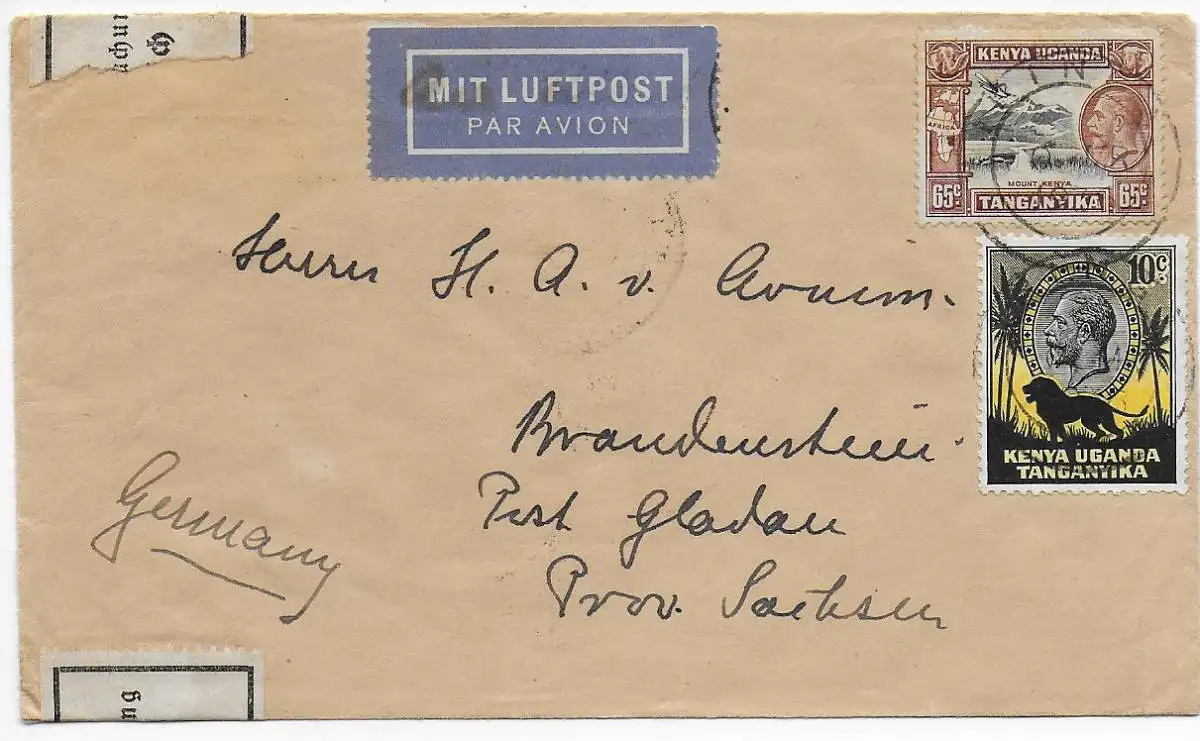 achun
ch
MIT LUFTPOST
PAR AVION
KENYA UGANDA
AFRICA
MOUNT KENYA
65c TANGANYIKA 65c
Herrn H. A. v. Arnim.
10c
KENYA UGANDA
TANGANYIKA
Brandenstein.
Post Gladau
Germany
Prov. Sachsen
ng